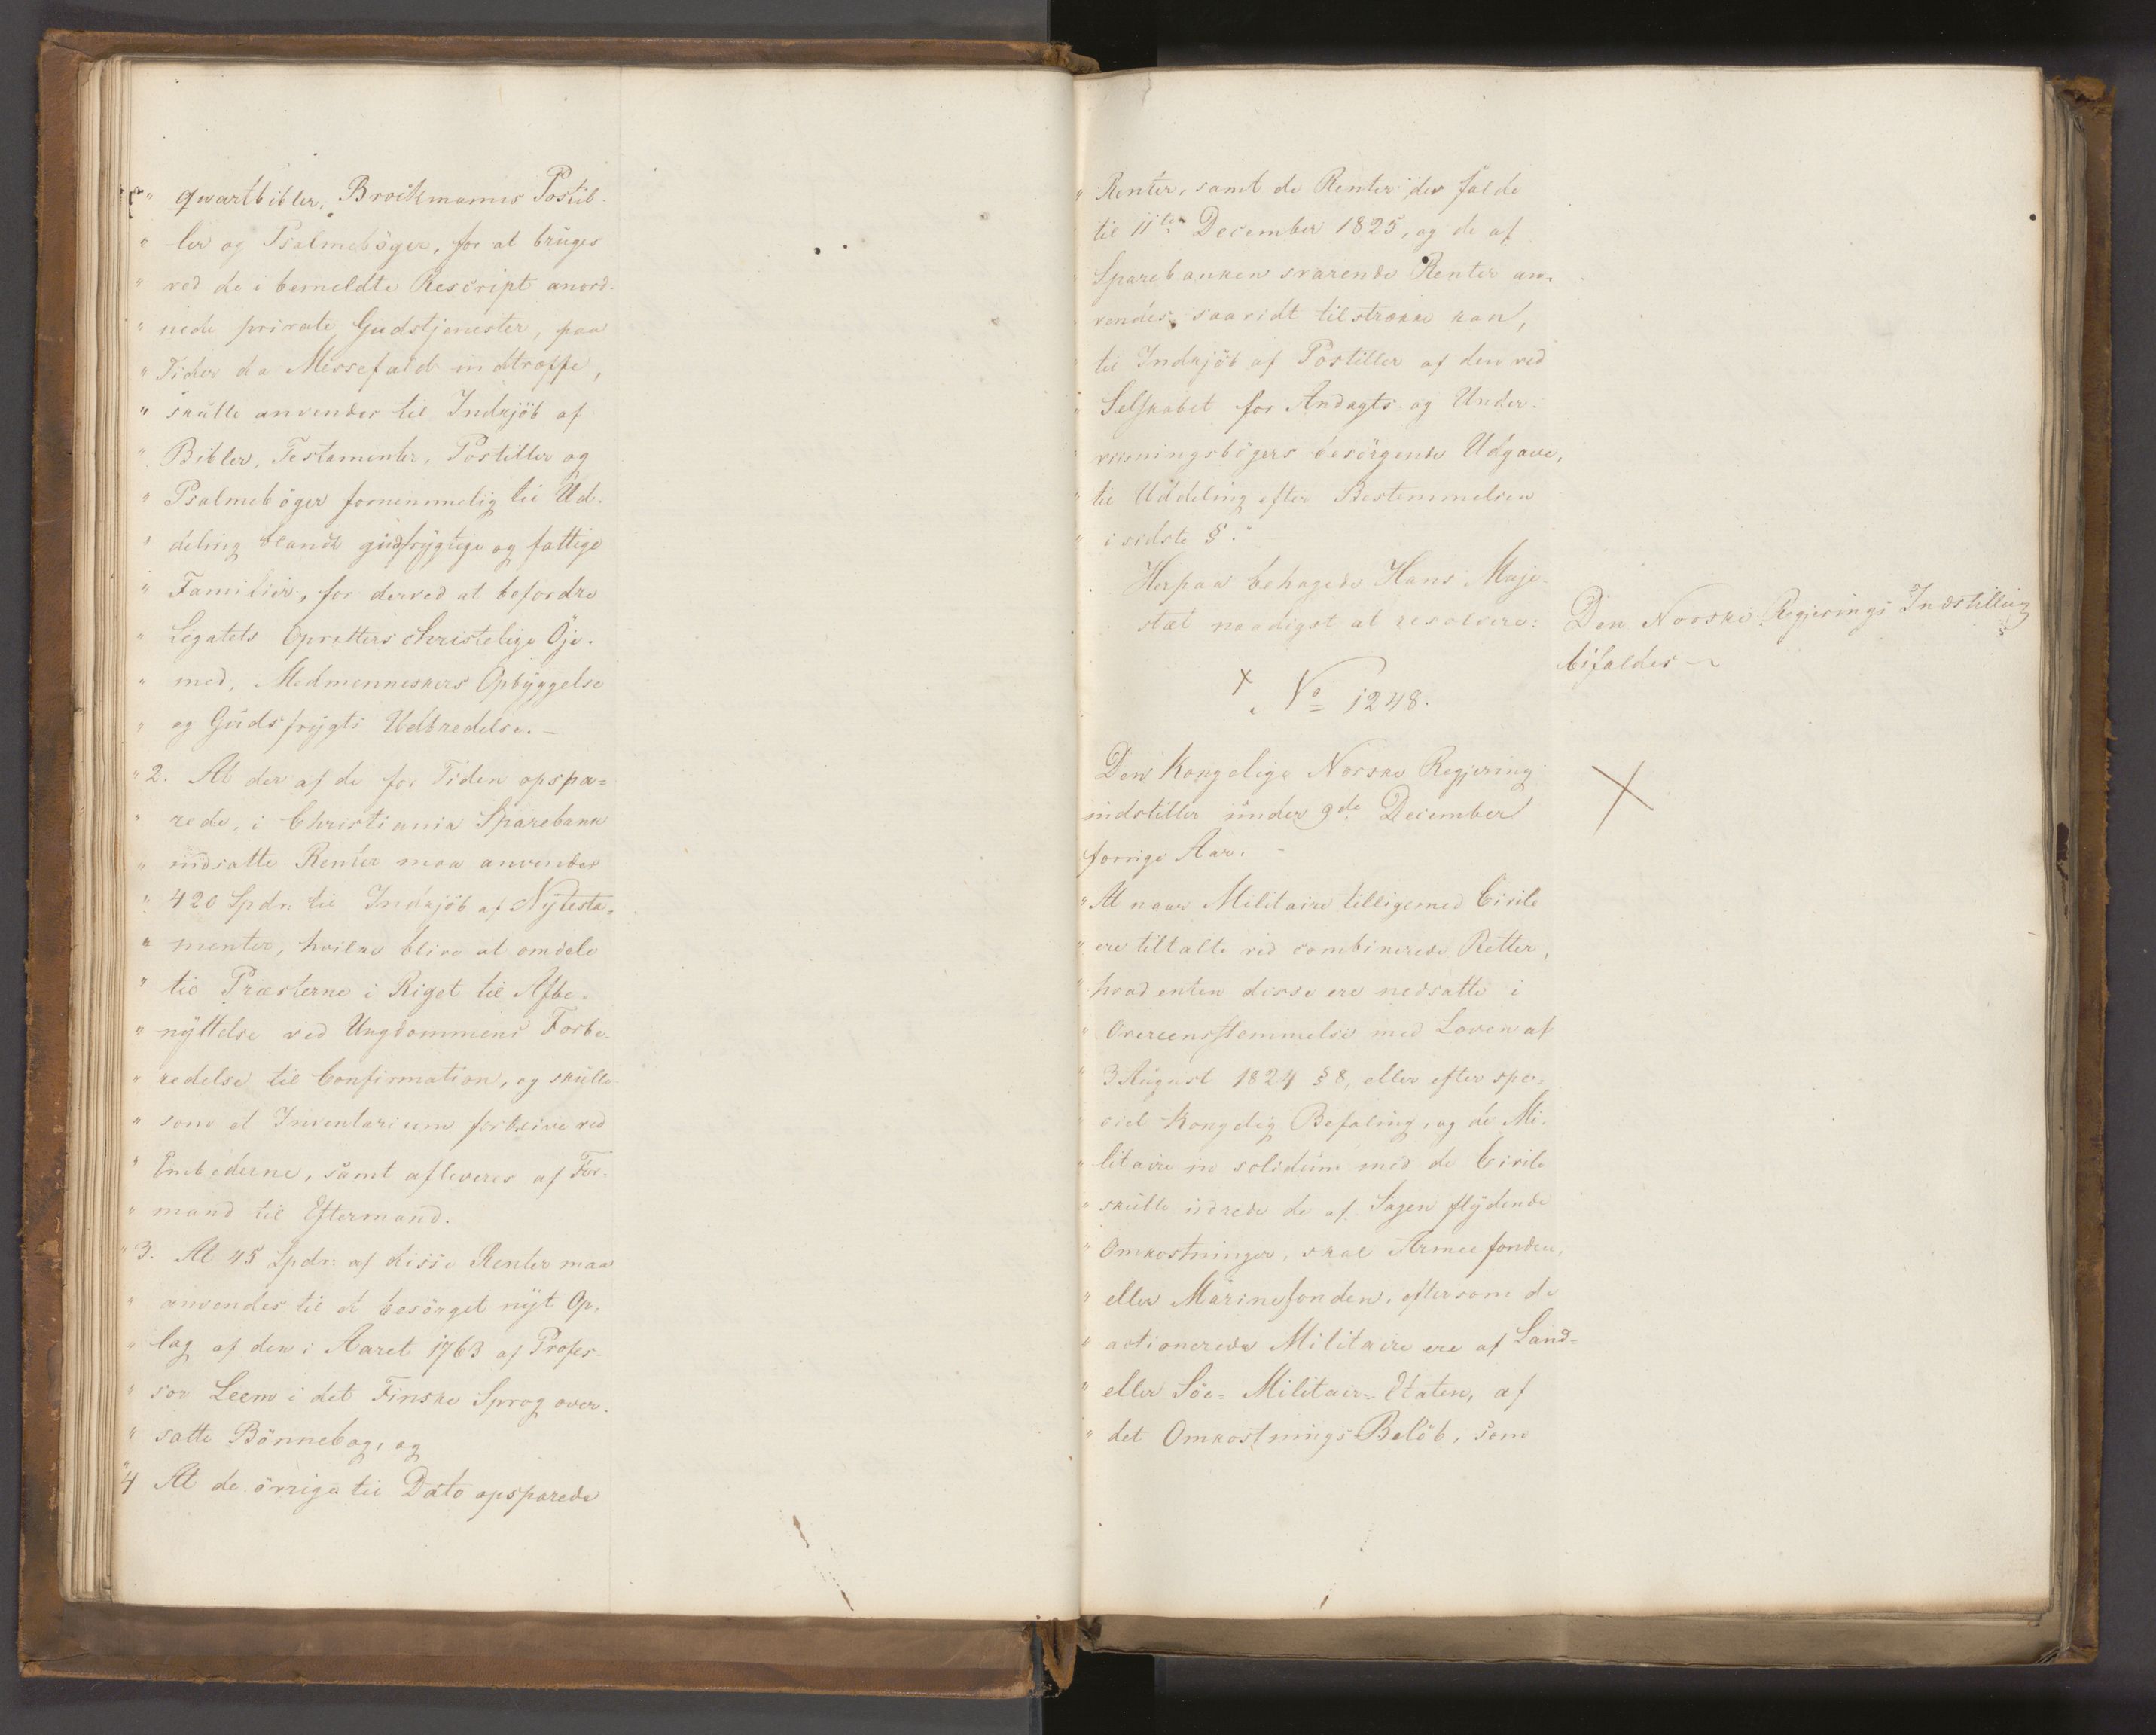 " qvartbibler, Brockmanns Postil-
" ler og Psalmebøger, for at bruges
" ved de i bemeldte Rescript anord-
" nede private Gudstjenester, paa
" Tider da Messefald indtræffe,
" skulle anvendes til Indkjöb af
" Bibler, Testamenter, Postiller og
" Psalmebøger fornemmelig til Ud-
" deling blandt gudfrygtige og fattige
" Familier, for derved at befordre
" Legatets Opretters christelige Öje-
" med, Medmenneskers Opbyggelse
" og Gudsfrygts Udbredelse. –
" 2. At der af de for Tiden opspa=
" rede, i Christiania Sparebank
" indsatte Renter maa anvendes
" 420 Spdr. til Indkjöb af Nytesta-
" menter, hvilke blive at omdele
" til Præsterne i Riget til Afbe-
" nyttelse ved Ungdommens Forbe-
" redelse til Confirmation, og skulle
" som et Inventarium forblive ved
" Embederne, samt afleveres af For-
" mand til Eftermand.
" 3. At 45 Spdr. af disse Renter maa
" anvendes til et besörget nyt Op-
" lag af den i Aaret 1763 af Profes-
" sor Leem i det Finske Sprog over-
" satte Bönnebog, og
" 4 At de övrige til Dato opsparede
" Renter, samt de Renter der falde
til 11te December 1825, og de af
Sparebanken svarende Renter an-
vendes, saavidt tilstrække kan,
" til Indkjöb af Postiller af den ved
" Selskabet for Andagts- og Under-
" viisningsbögers besörgende Udgave,
" til Uddeling efter Bestemmelsen
" i sidste §."
Herpaa behagede Hans Maje-
stæt naadigst at resolvere:
Den Norske Regjerings Indstilling
bifaldes
+ No 1248.
Den Kongelige Norske Regjering
indstiller under 9de December
forrige Aar. –
" At naar Militaire tilligemed Civile
" ere tiltalte ved combinerede Retter,
" hvad enten disse ere nedsatte i
" Overeensstemmelse med Loven af
" 3 August 1824 § 8, eller efter spe-
" ciel Kongelig Befaling, og de Mi-
" litaire in solidum med de Civile
" skulle udrede de af Sagen flydende
" Omkostninger, skal Armeefonden,
" eller Marinefonden, eftersom de
" actionerede Militaire ere af Land=
" eller Söe= Militair= Etaten, af
" det Omkostnings Belöb, som